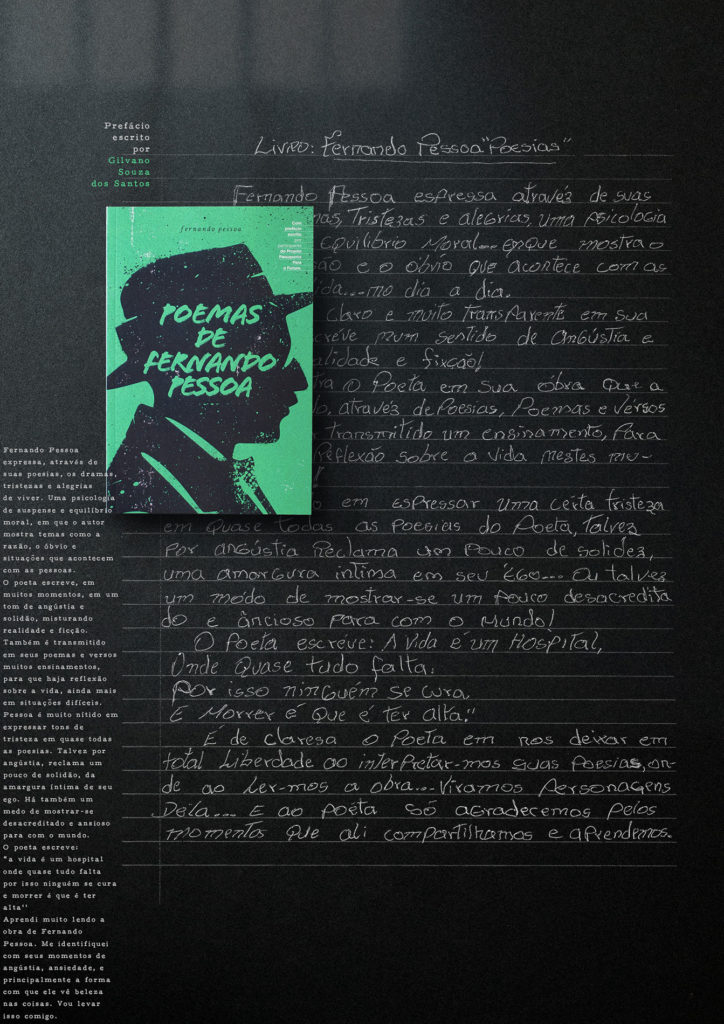 Prefácio
escrito
por
Gilvano
Souza
dos Santos
Livro: Fernando Pessoa "Poesias"
Fernando Pessoa espressa atravéz de suas
Tristezas e alegrias, uma Psicologia
Equilíbrio Moral... em que mostra o
e o óbvio que acontece com as
da... mo dia a dia.
Claro e muito transparente em sua
creve num sentido de angústia e
alidade e fixção!
tra o Poeta em sua óbra que a
do, atravéz de Poesias, Poemas e vérsos
transmitido um ensinamento, para
Reflexão sobre a vida nestes mu-
!
em espressar uma certa tristeza
em quase todas as poesias do Poeta, talvez
por angústia reclama um pouco de solidez,
uma amargura intima em seu Égo... Ou talvez
um modo de mostrar-se um pouco desacredita
do e âncioso para com o mundo!
O Poeta escreve: A vida é um Hospital,
Onde quase tudo falta.
Por isso ninguém se cura,
E Morrer é que é ter alta."
É de claresa o Poeta em nos deixar em
total liberdade ao interpretar-mos suas Poesias, on-
de ao ler-mos a obra... Viramos Personagens
Dela... E ao poeta só agradecemos pelos
momentos que ali compartilhamos e aprendemos.
fernando pessoa
Com
prefácio
escrito
por
participante
do Projeto
Passaporte
Para
o Futuro.
POEMAS
DE
FERNANDO
PESSOA
Fernando Pessoa
expressa, através de
suas poesias, os dramas,
tristezas e alegrias
de viver. Uma psicologia
de suspense e equilíbrio
moral, em que o autor
mostra temas como a
razão, o óbvio e
situações que acontecem
com as pessoas.
O poeta escreve, em
muitos momentos, em um
tom de angústia e
solidão, misturando
realidade e ficção.
Também é transmitido
em seus poemas e versos
muitos ensinamentos,
para que haja reflexão
sobre a vida, ainda mais
em situações difíceis.
Pessoa é muito nítido em
expressar tons de
tristeza em quase todas
as poesias. Talvez por
angústia, reclama um
pouco de solidão, da
amargura íntima de seu
ego. Há também um
medo de mostrar-se
desacreditado e ansioso
para com o mundo.
O poeta escreve:
"a vida é um hospital
onde quase tudo falta
por isso ninguém se cura
e morrer é que é ter
alta"
Aprendi muito lendo a
obra de Fernando
Pessoa. Me identifiquei
com seus momentos de
angústia, ansiedade, e
principalmente a forma
com que ele vê beleza
nas coisas. Vou levar
isso comigo.